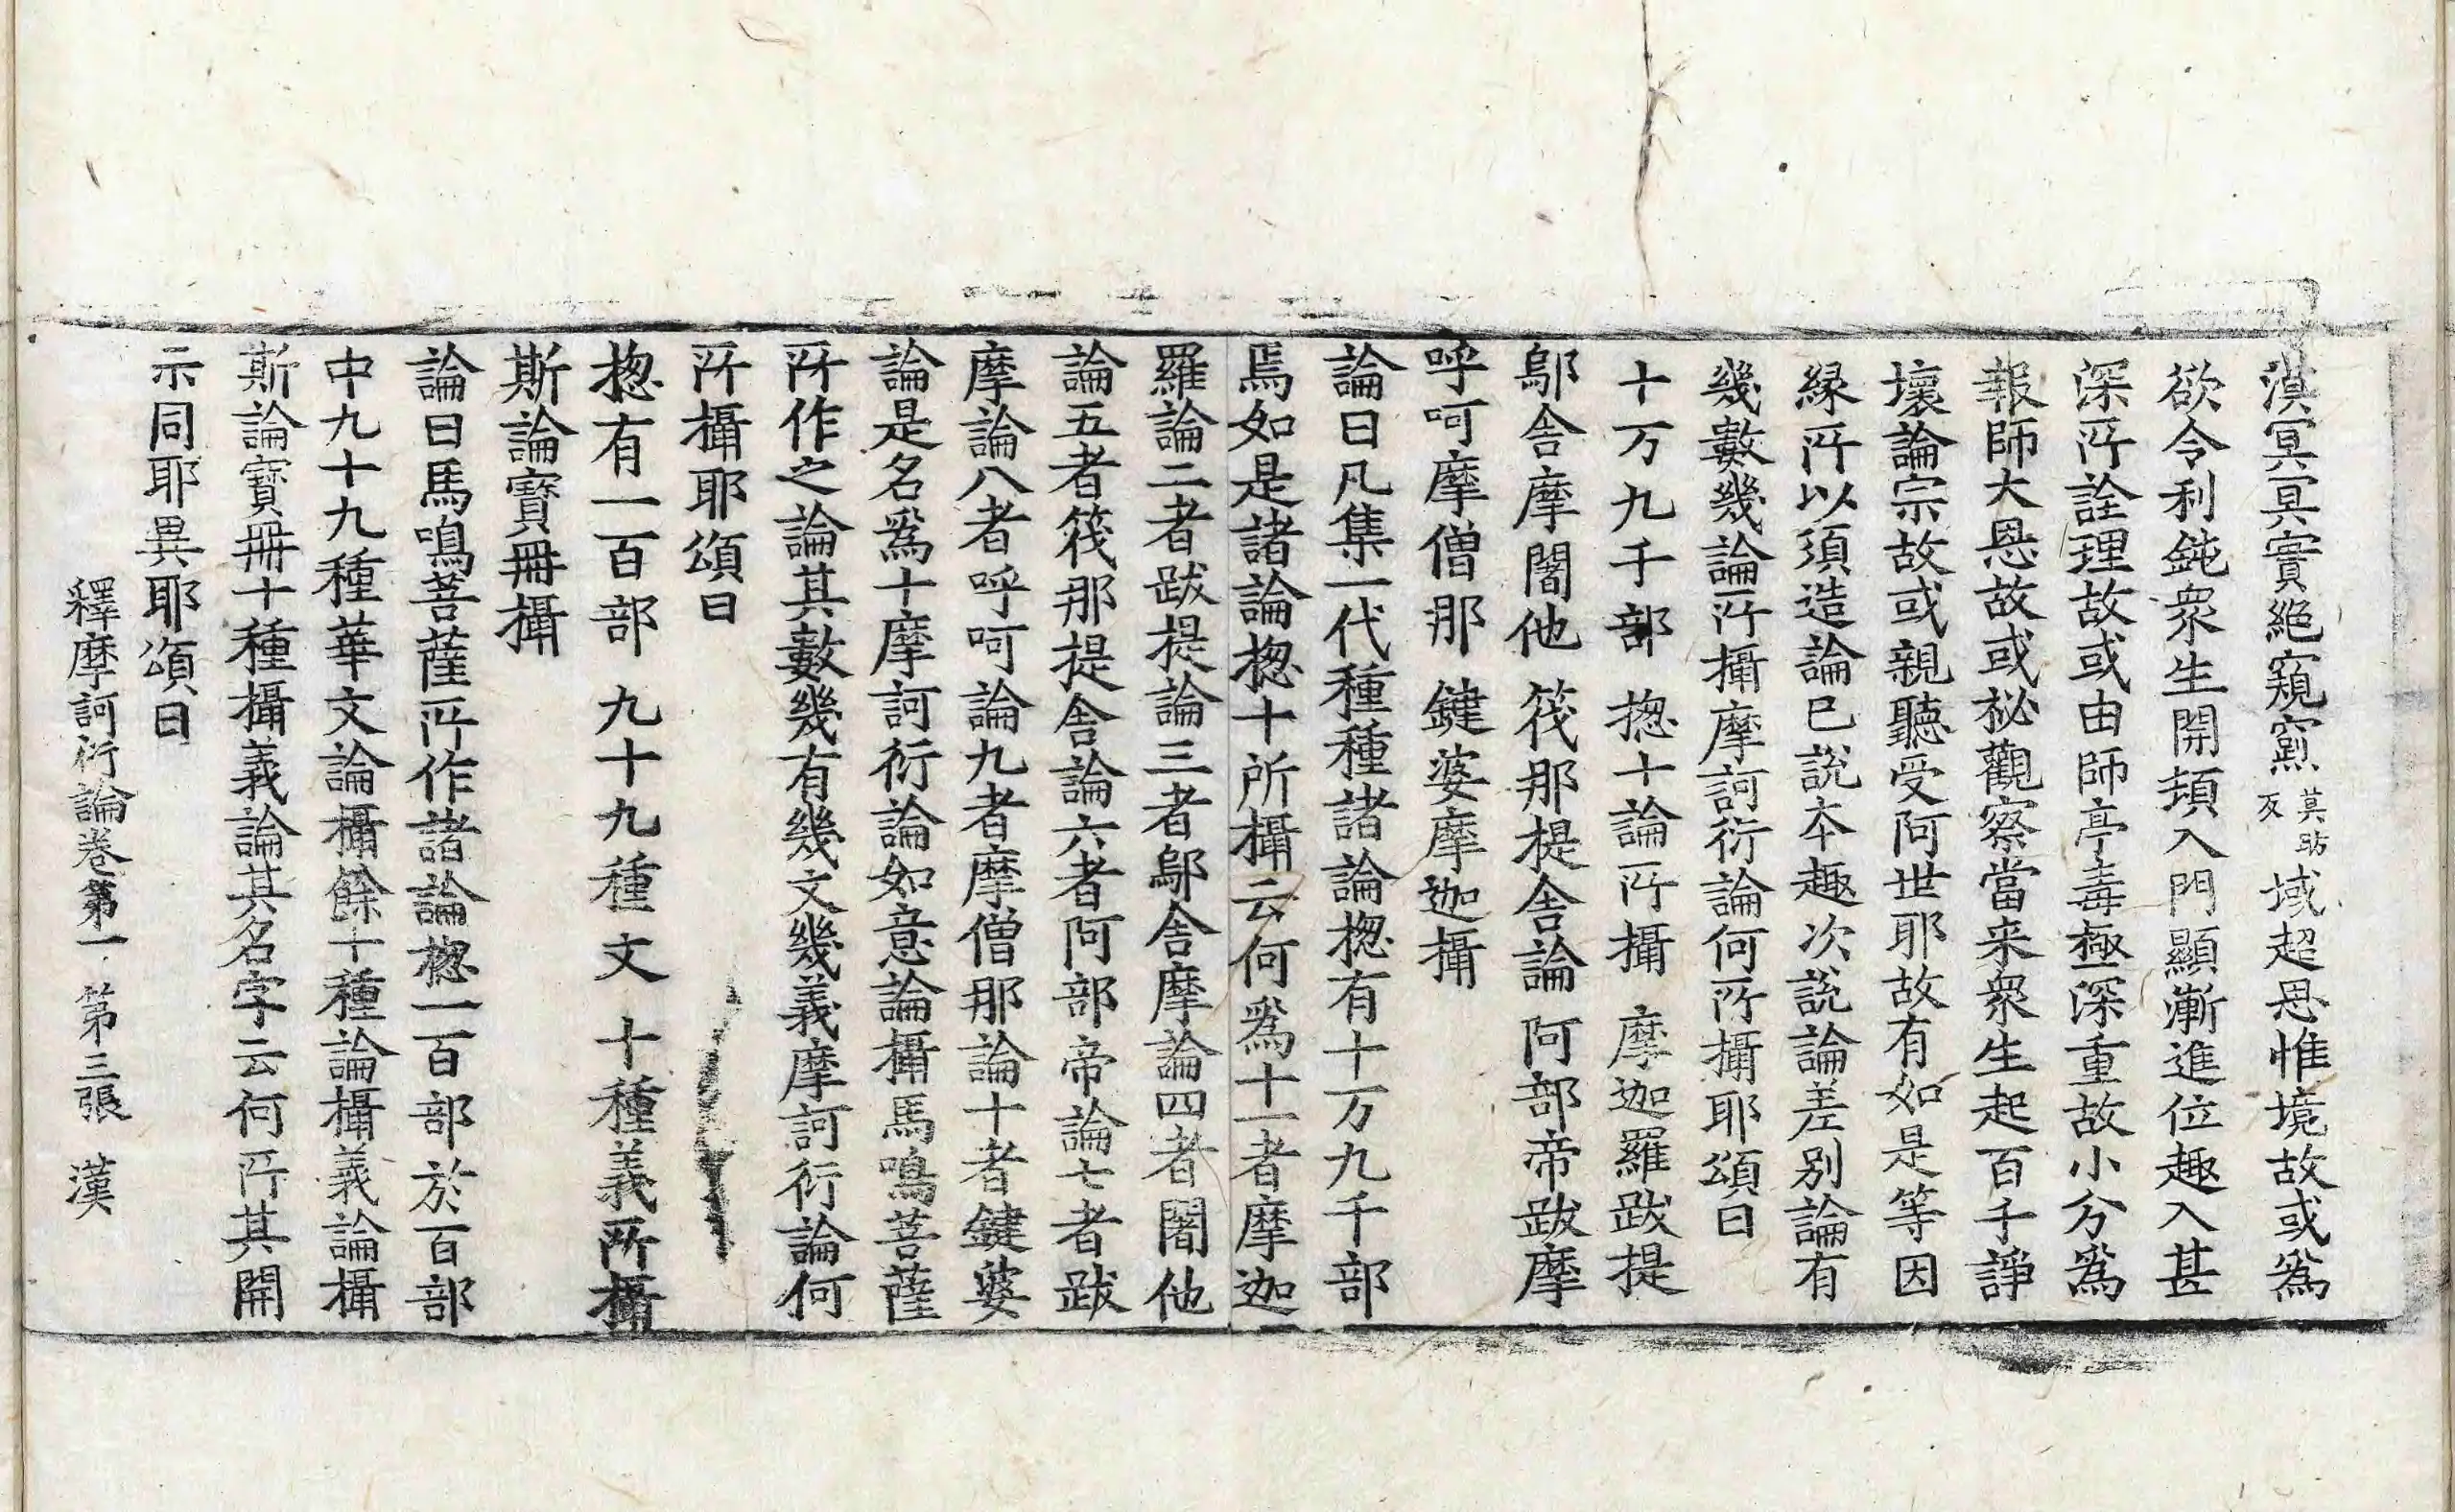 漠冥冥實絶窺窯莫昉反域超思惟境故或爲
欲令利鈍衆生開頓入門顯漸進位趣入甚
深所詮理故或由師亭毒極深重故小分爲
報師大恩故或祕觀察當来衆生起百千諍
壞論宗故或親聽受阿世耶故有如是等因
縁所以須造論已說本趣次說論差别論有
幾數幾論所攝摩訶衍論何所攝耶頌曰
十万九千部 揔十論所攝 摩迦羅跋提
鄔舎摩闍他 筏那提舎論 阿部帝跋摩
呼呵摩僧那 鍵婆摩迦攝
論曰凡集一代種種諸論揔有十万九千部
焉如是諸論揔十所攝云何爲十一者摩迦
羅論二者跋提論三者鄔舎摩論四者闍他
論五者筏那提舎論六者阿部帝論七者跋
摩論八者呼呵論九者摩僧那論十者鍵婆
論是名爲十摩訶衍論如意論攝馬鳴菩薩
所作之論其數幾有幾文幾義摩訶衍論何
所攝耶頌曰
揔有一百部 九十九種文 十種義所攝
斯論寶冊攝
論曰馬鳴菩薩所作諸論揔一百部於百部
中九十九種華文論攝餘十種論攝義論攝
斯論寶冊十種攝義論其名字云何所其開
示同耶異耶頌曰
釋摩訶衍論卷第一 第三張 漢